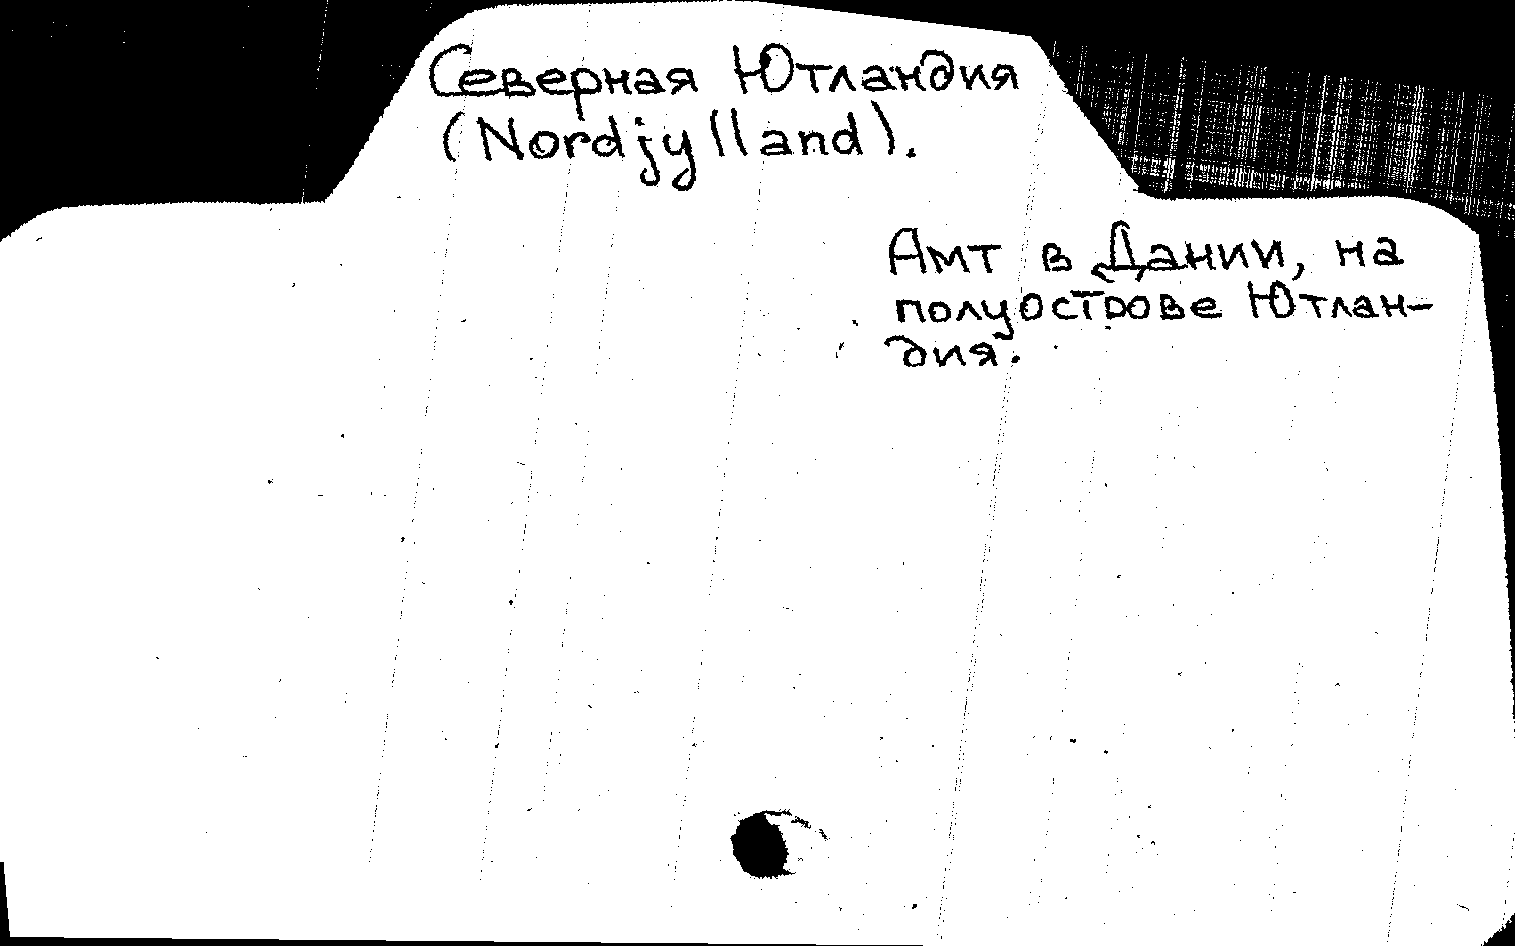 Северная Ютландия
(Nordjylland).
Амт в Дании, на
полуострове Ютлан-
дия.